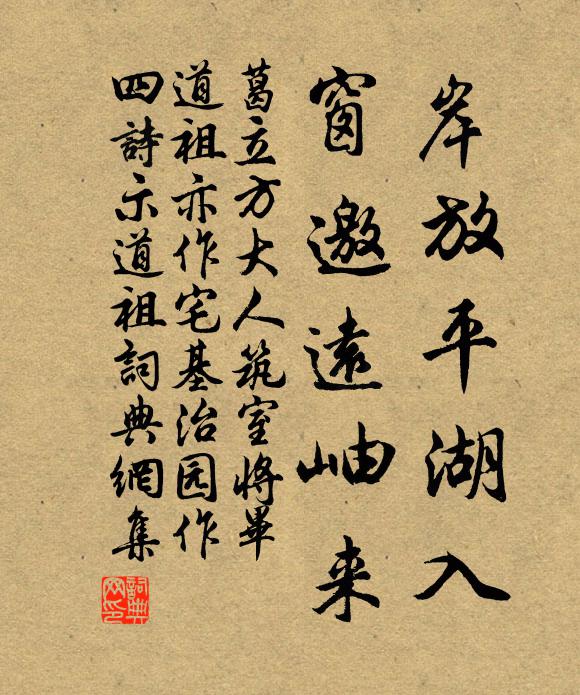 岸放平湖入
窗邀遠岫来
葛立方大人筑室將畢
道祖亦作宅基治园作
四詩示道祖詞典網集
詞典
网印